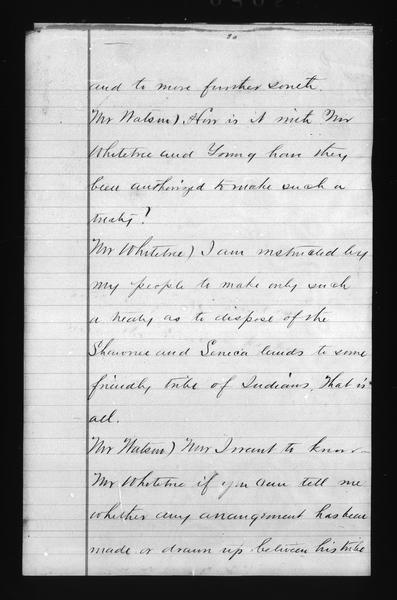 20
and to move further south.
Mr Watson) How is it with Mr
Whitetree and Young have they
been authorized to make such a
treaty?
Mr Whitetree) I am instructed by
my people to make only such
a treaty as to dispose of the
Shawnee and Seneca lands to some
friendly tribe of Indians. That is
all.
Mr Watson) Now I want to know
Mr Whitetree if you can tell me
whether any arrangement has been
made or drawn up between his tribe